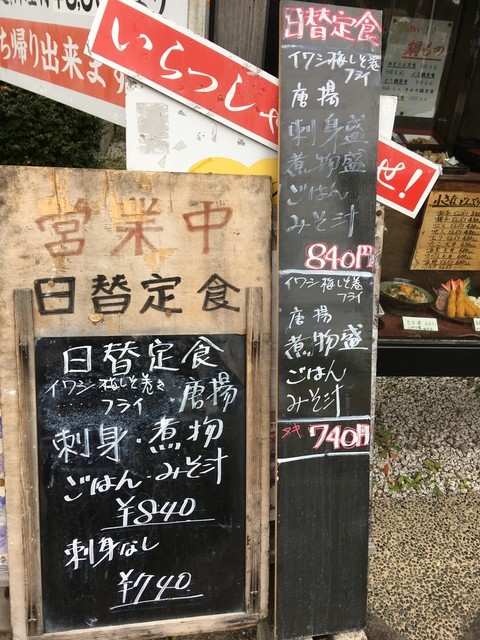 ち帰り出来ます
いらっしゃ
せ!
営業中
日替定食
日替定食
イワシ 梅しそ巻き
フライ ・唐揚
刺身・煮物
ごはん・みそ汁
¥840
刺身なし
¥740
日替定食
イワシ梅しそ巻
フライ
唐揚
刺身盛
煮物盛
ごはん
みそ汁
840円
イワシ梅しそ巻
フライ
唐揚
煮物盛
ごはん
みそ汁
ヌキ 740円